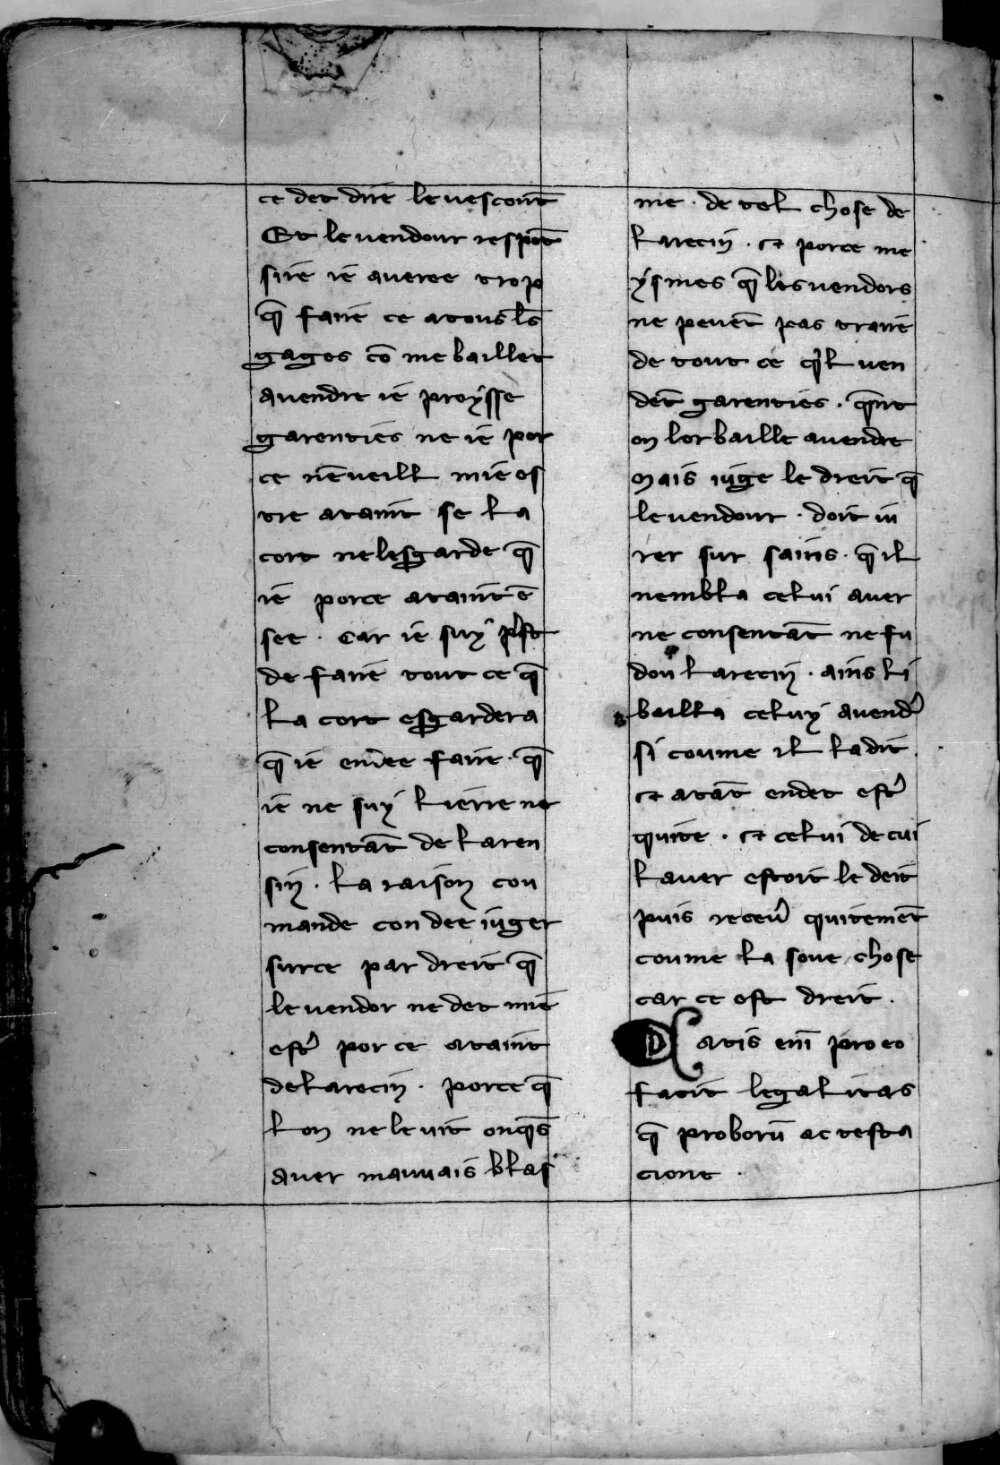 ce det dire le uescont
Et le uendour respōt
sire ie aueree trop
q̄ faire ce atous les
gages cō me baillet
auendre ie preysse
garenties ne ie por
ce nē ueill mie es
tre ataint se la
cort ne lesgarde q̄
ie porce ataint es
see . Car ie suy p̄st
de faire tout ce q̄
la cort esgardera
q̄ ie en dee faire . q̄
ie ne suy lierre ne
consentāt de laren
sin . La raison cou
mande con dee iuger
surce par dreit q̄
le uendor ne det mie
estr̄ por ce ataint
de larecin . porce q̄
lon ne le uit onq̄s
auer mauuais blas
me . de tel chose de
larecin . et porce me
ysmes q̄ les uendors
ne peuēt pas traire
de tout ce q̄l uen
dēt garenties . q̄nt
on lor baille auendre
mais iuge le dreit q̄
le uendour . doit iu
rer sur sains . q̄ il
nembla celui auer
ne consentāt ne fu
dou larecin . ains li
bailla celuy auendr̄
si coume il la dit .
et atāt endet estr̄
quite . et celui de cui
lauer estoit le deit
puis receu̾ quitemēt
coume la soue chose
car ce est dreit .
Datis eni pro eo
facit legalitas
q̄ proborū ac testa
cione .